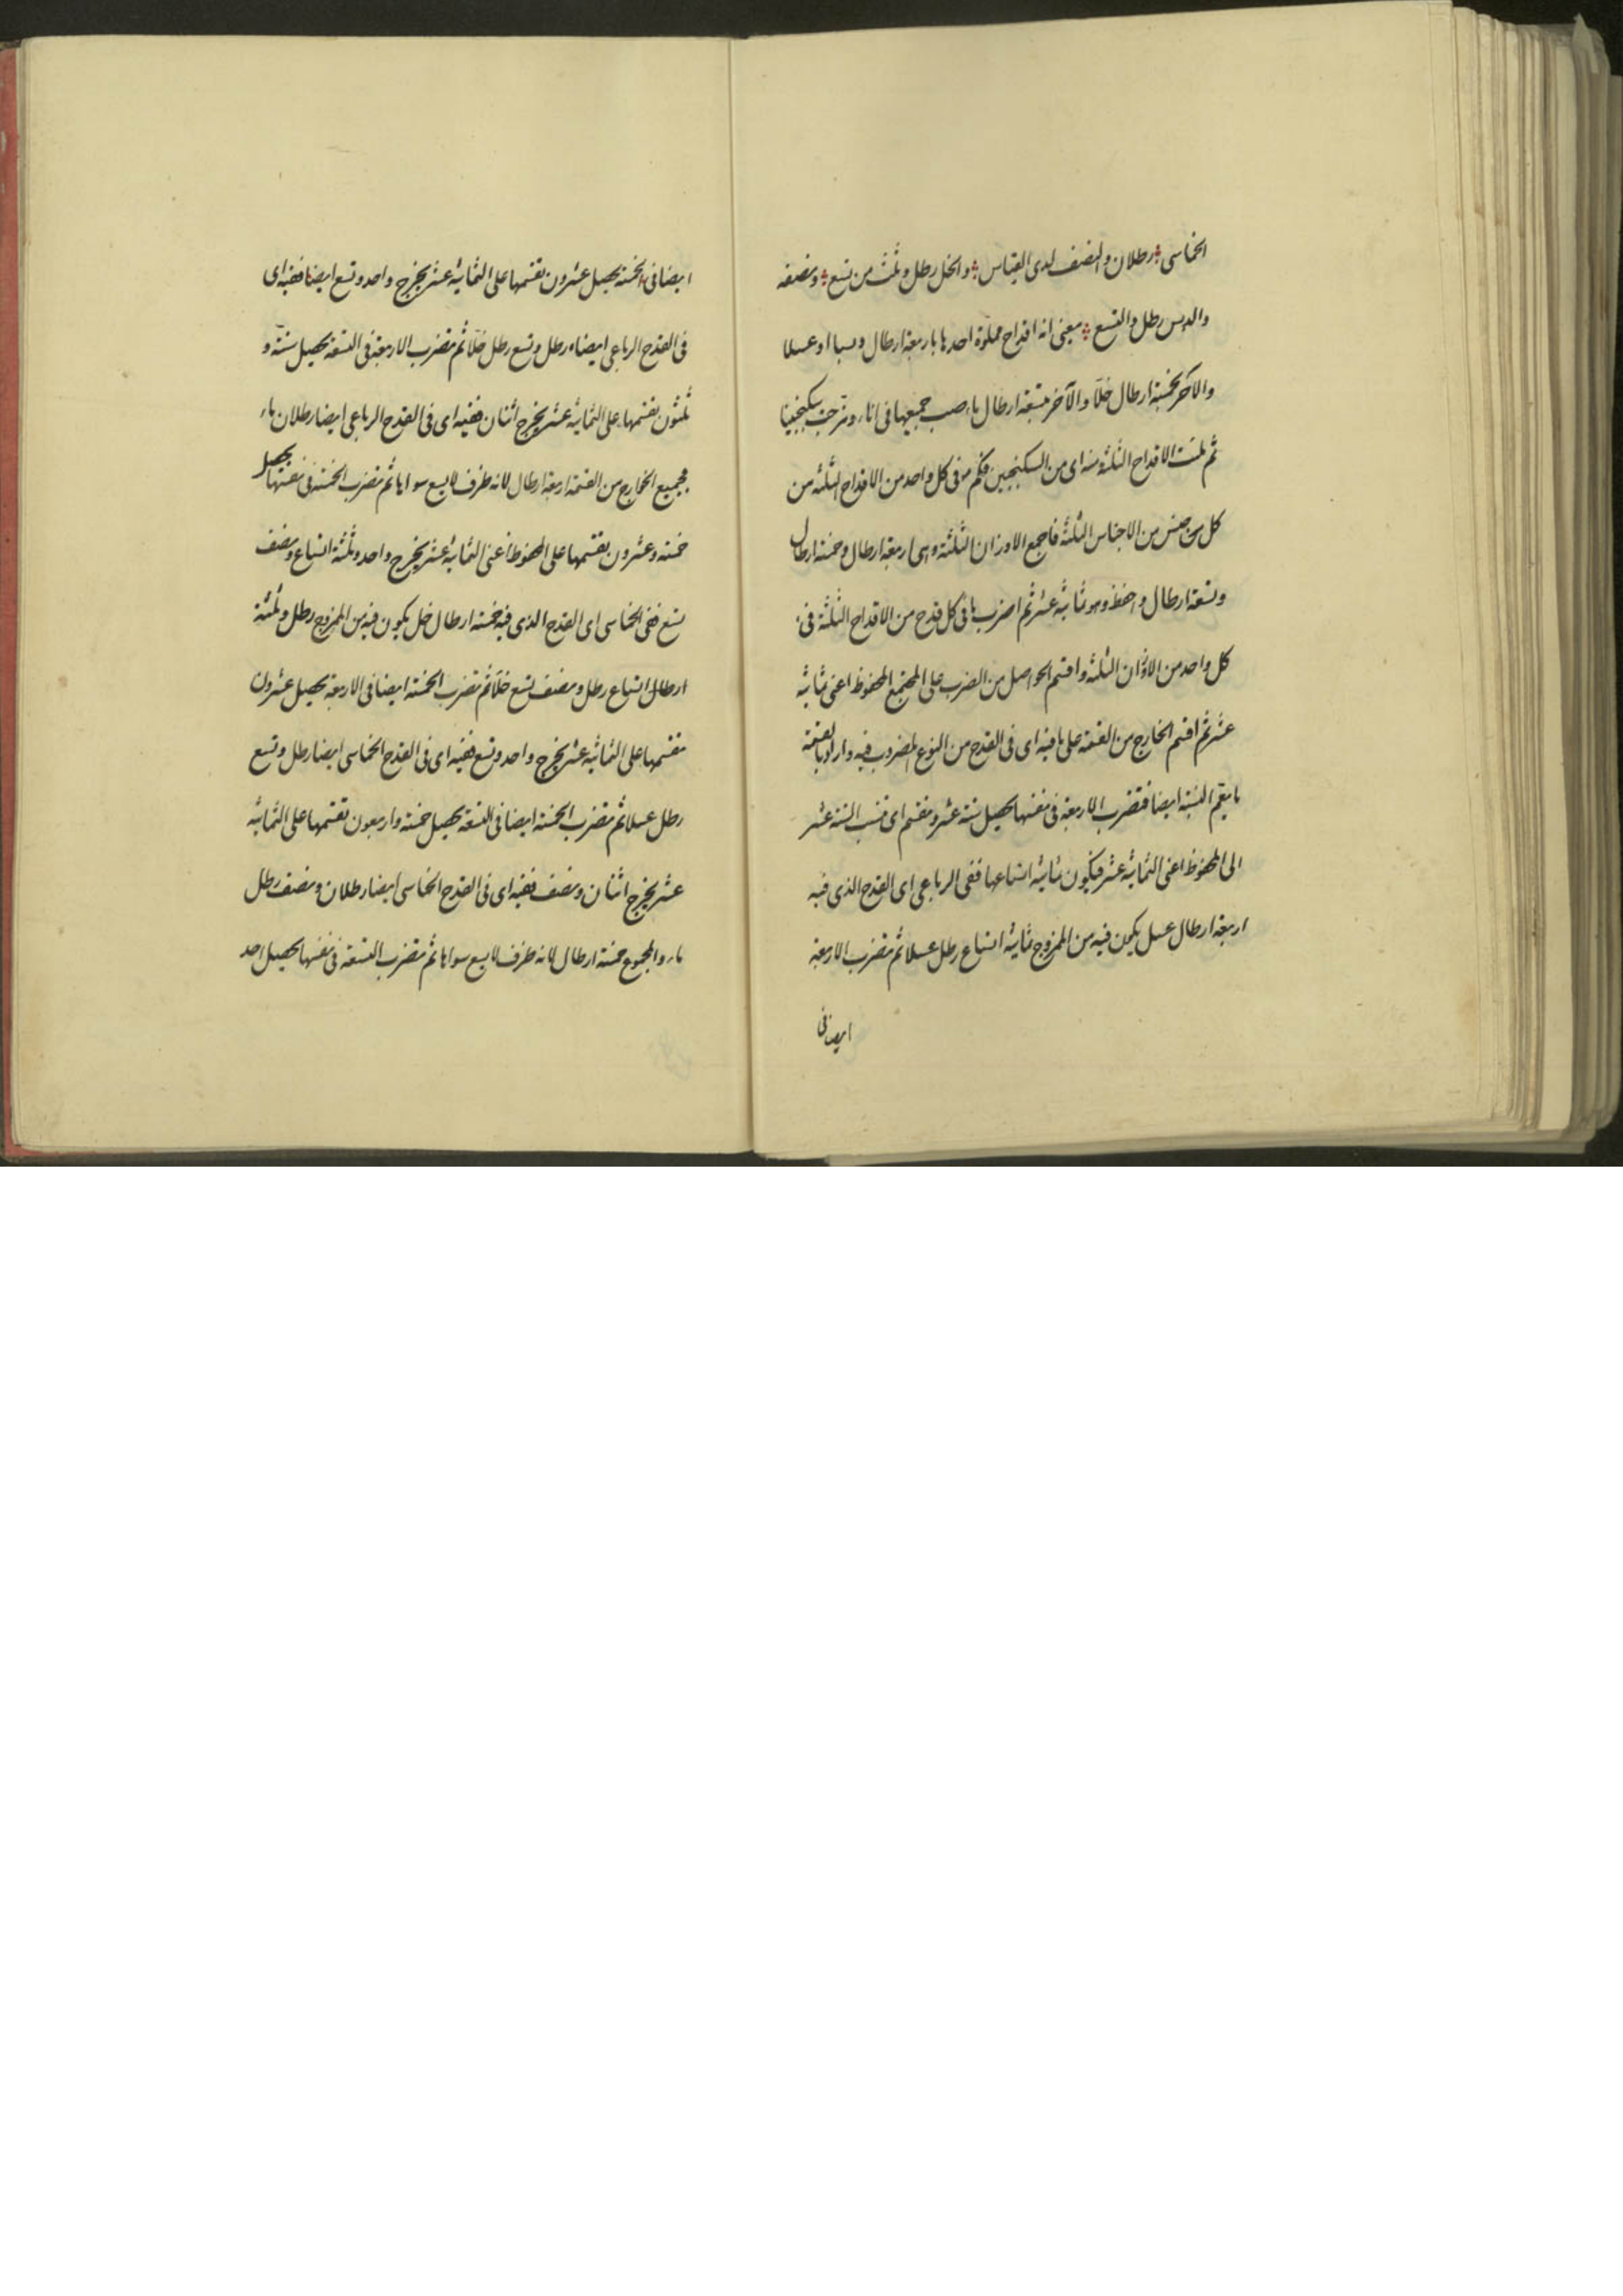 الخماسى رطلان والنصف لدى القياس والخل رطل وثلث من تسع ونصفه
والدبس رطل والتسع يعنى انه اقداح مملوة احدها باربعة ارطال دبسا او عسلا
والآخر بخمسة ارطال خلّا والآخر بتسعة ارطال ماء صب جميعها فى اناء ومزجت سكنجبينا
ثم ملئت الاقداح الثلثة منه اى من السكنجبين فكم فى كل واحد من الاقداح الثلثة من
كل جنس من الاجناس الثلثة فاجمع الاوزان الثلثة وهى اربعة ارطال وخمسة ارطال
وتسعة ارطال واحفظ وهو ثمانية عشر ثم اضرب ما فى كل قدح من الاقداح الثلثة فى
كل واحد من الاوزان الثلثة واقسم الحواصل من الضرب على المجتمع المحفوظ اعنى ثمانية
عشر ثم اقسم الخارج من القسمة على ما فيه اى فى القدح من النوع المضروب فيه واراد بالقسمة
ما يعم النسبة ايضا فتضرب الاربعة فى نفسها يحصل ستة عشر وتقسم اى تنسب الستة عشر
الى المحفوظ اعنى الثمانية عشر فيكون ثمانية اتساعها ففى الرباعى اى القدح الذى فيه
اربعة ارطال عسل يكون فيه من الممزوج ثمانية اتساع رطل عسلا ثم تضرب الاربعة
ايضا فى
ايضا فى الخمسة يحصل عشرون تقسمها على الثمانية عشر يخرج واحد وتسع ايضا ففيه اى
فى القدح الرباعى ايضا رطل وتسع رطل خلّا ثم تضرب الاربعة فى التسعة يحصل ستة و
ثلثون تقسمها على الثمانية عشر يخرج اثنان ففيه اى فى القدح الرباعى ايضا رطلان ماء
فجميع الخارج من القسمة اربعة ارطال لانه ظرف لا يسع سواها ثم تضرب الخمسة فى نفسها يحصل
خمسة وعشرون تقسمها على المحفوظ اعنى الثمانية عشر يخرج واحد وثلثة اتساع ونصف
تسع ففى الخماسى اى القدح الذى فيه خمسة ارطال خل يكون فيه من الممزوج رطل وثلثة
ارطال اتساع رطل ونصف تسع خلّا ثم تضرب الخمسة ايضا فى الاربعة يحصل عشرون
تقسمها على الثمانية عشر يخرج واحد وتسع ففيه اى فى القدح الخماسى ايضا رطل وتسع
رطل عسلا ثم تضرب الخمسة ايضا فى التسعة يحصل خمسة واربعون تقسمها على الثمانية
عشر يخرج اثنان ونصف ففيه اى فى القدح الخماسى ايضا رطلان ونصف رطل
ماء والمجموع خمسة ارطال لانه ظرف لا يسع سواها ثم تضرب التسعة فى نفسها يحصل احد